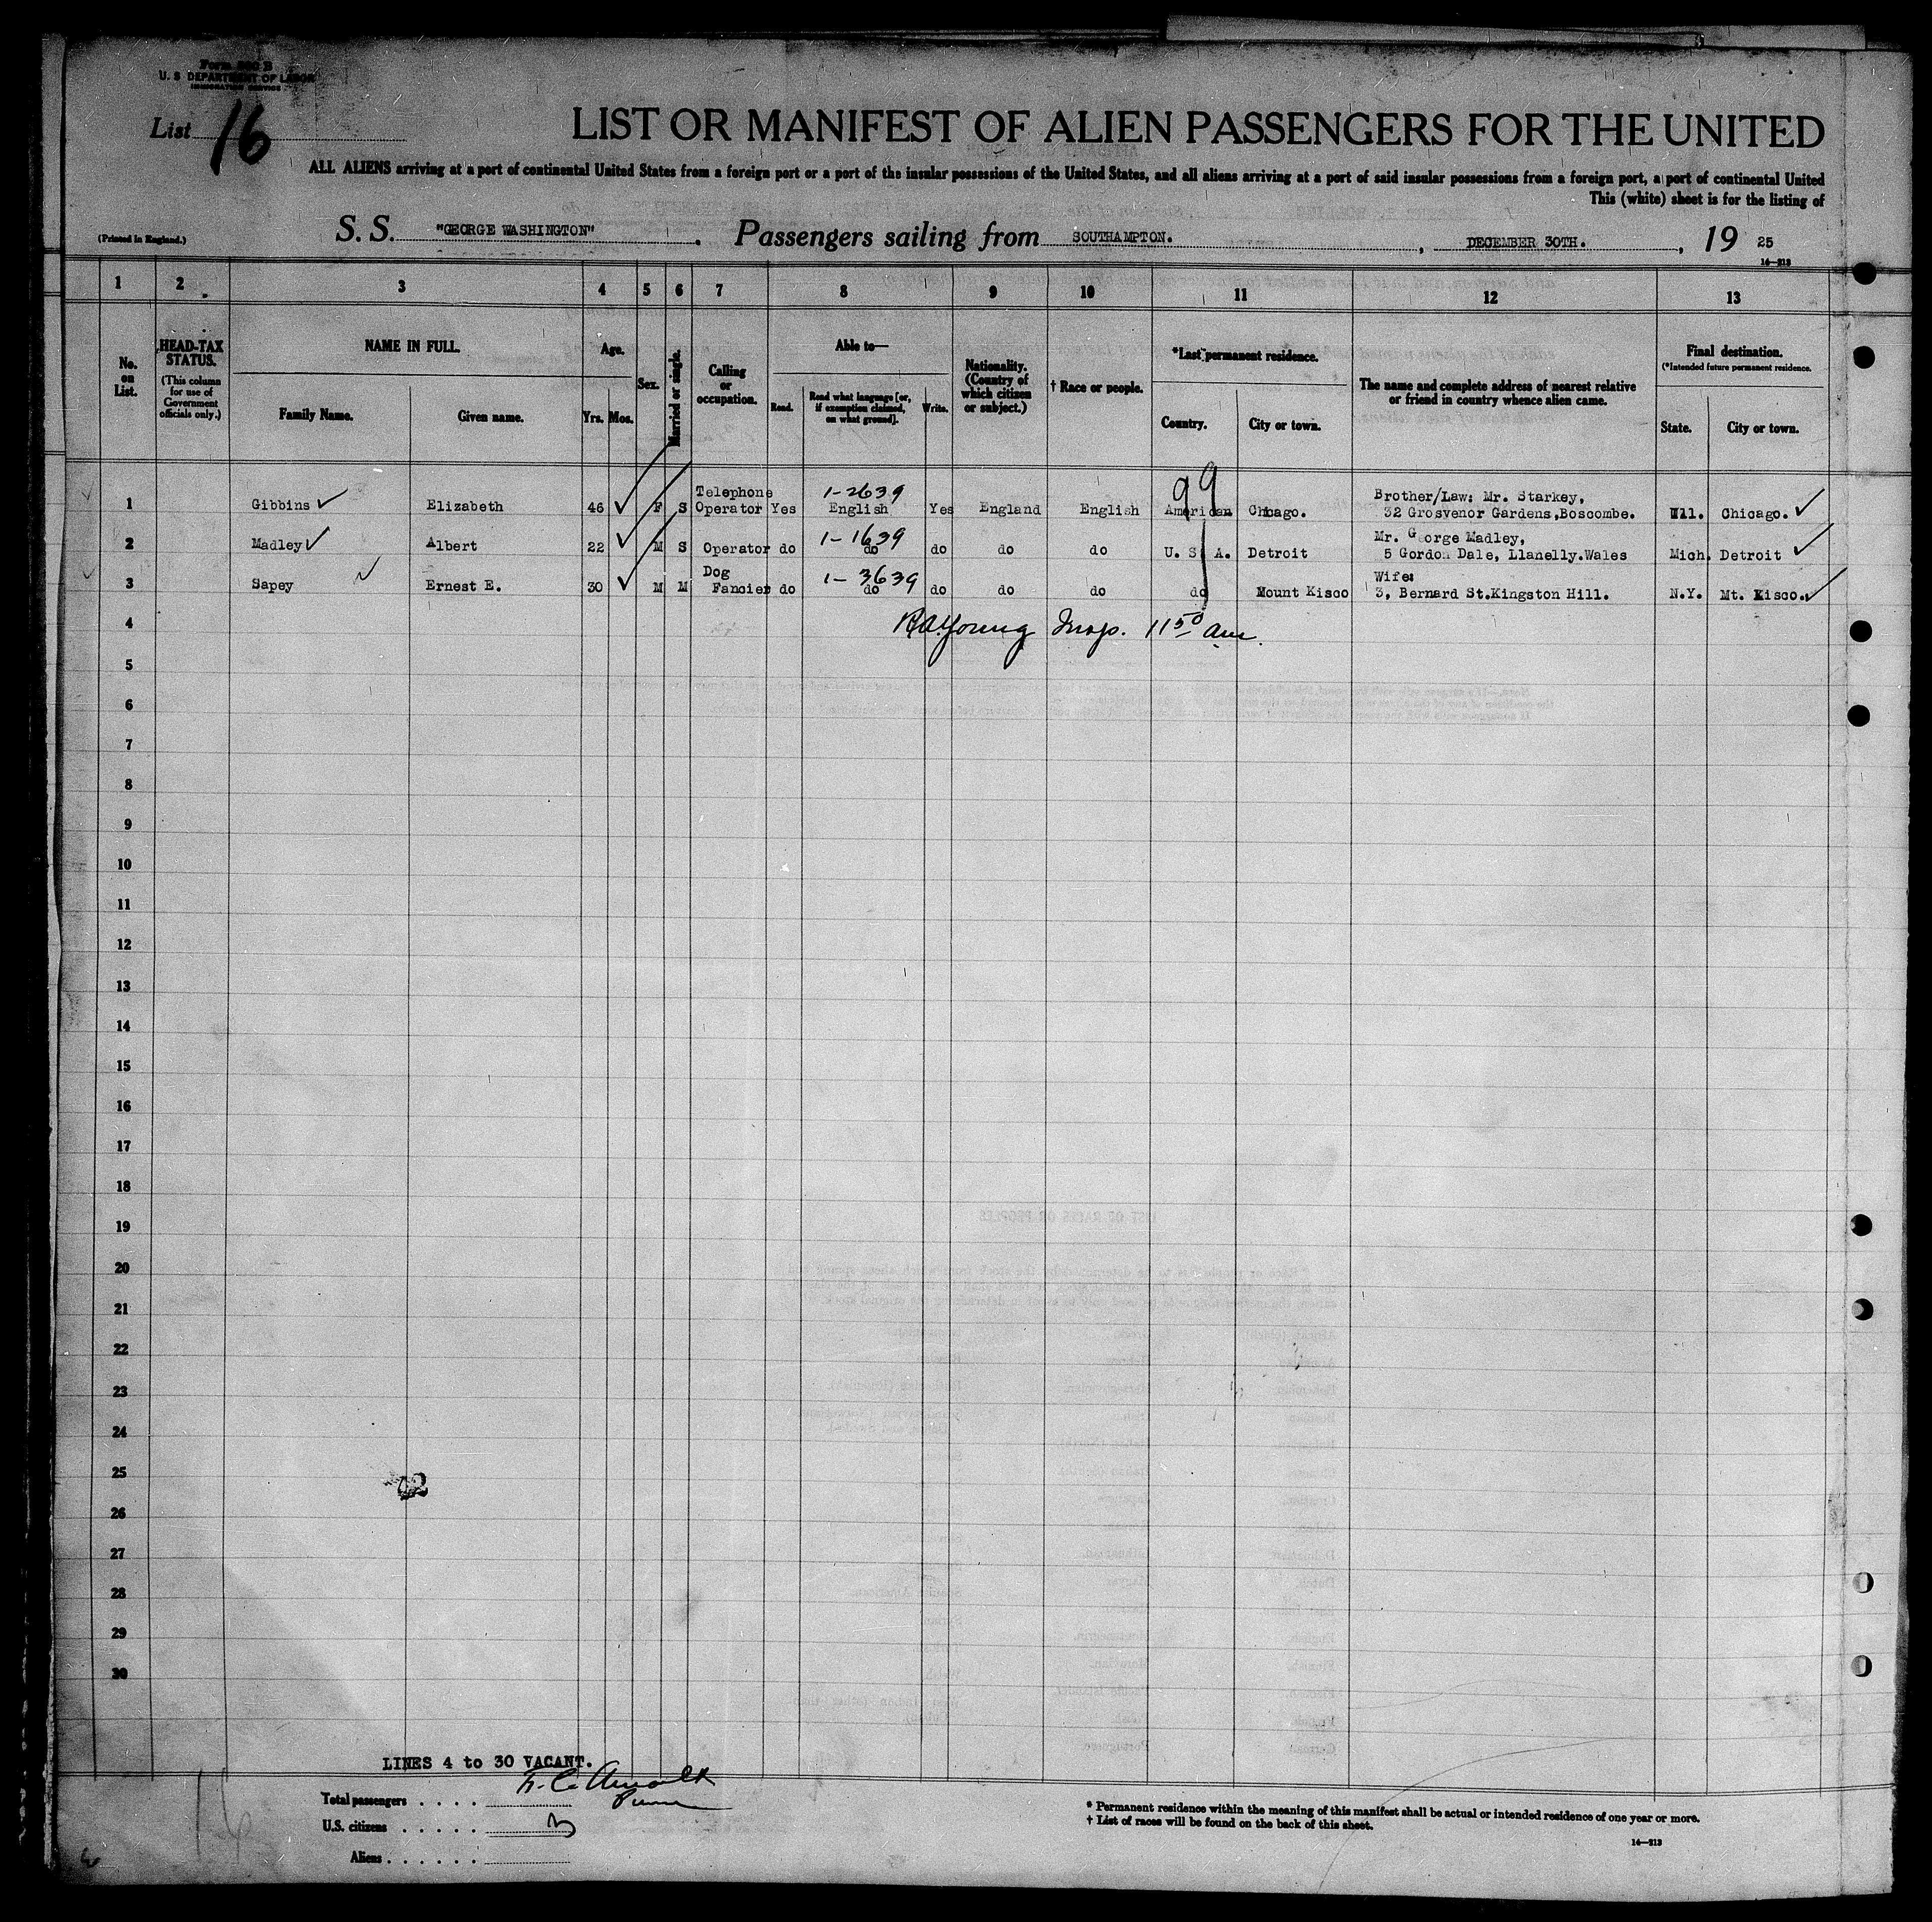 Form 500 B
U. S DEPARTMENT OF LABOR
IMMIGRATION SERVICE
List 16
LIST OR MANIFEST OF ALIEN PASSENGERS FOR THE UNITED
ALL ALIENS arriving at a port of continental United States from a foreign port or a port of the insular possessions of the United States, and all aliens arriving at a port of said insular possessions from a foreign port, a port of continental United
This (white) sheet is for the listing of
(Printed in England.)
S. S. "GEORGE WASHINGTON" . Passengers sailing from SOUTHAMPTON. , DECEMBER 30TH. , 19 25
14—213
1 2 3 4 5 6 7 8 9 10 11 12 13
No. on List.
HEAD-TAX STATUS.
(This column for use of Government officials only.)
NAME IN FULL.
Family Name.
Given name.
Age.
Yrs. Mos.
Sex.
Married or single.
Calling or occupation.
Able to—
Read.
Read what language [or, if exemption claimed, on what ground].
Write.
Nationality. (Country of which citizen or subject.)
† Race or people.
*Last permanent residence.
Country.
City or town.
The name and complete address of nearest relative or friend in country whence alien came.
Final destination.
(*Intended future permanent residence.
State.
City or town.
Telephone 1-2639 99 Brother/Law: Mr. Starkey,
1 Gibbins Elizabeth 46 F S Operator Yes English Yes England English American Chicago. 32 Grosvenor Gardens,Boscombe. Ill. Chicago.
1-1639 Mr. George Madley,
2 Madley Albert 22 M S Operator do do do do do U. S. A. Detroit 5 Gordon Dale, Llanelly.Wales Mich. Detroit
Dog 1-3639 Wife:
3 Sapey Ernest E. 30 M M Fancier do do do do do do Mount Kisco 3, Bernard St.Kingston Hill. N.Y. Mt. Kisco.
4 Young Insp. 11 50 am.
5
6
7
8
9
10
11
12
13
14
15
16
17
18
19
20
21
22
23
24
25
26
27
28
29
30
LINES 4 to 30 VACANT.
Total passengers . . . .
U.S. citizens . . . . .
Aliens . . . . . .
* Permanent residence within the meaning of this manifest shall be actual or intended residence of one year or more.
† List of races will be found on the back of this sheet.
14—213